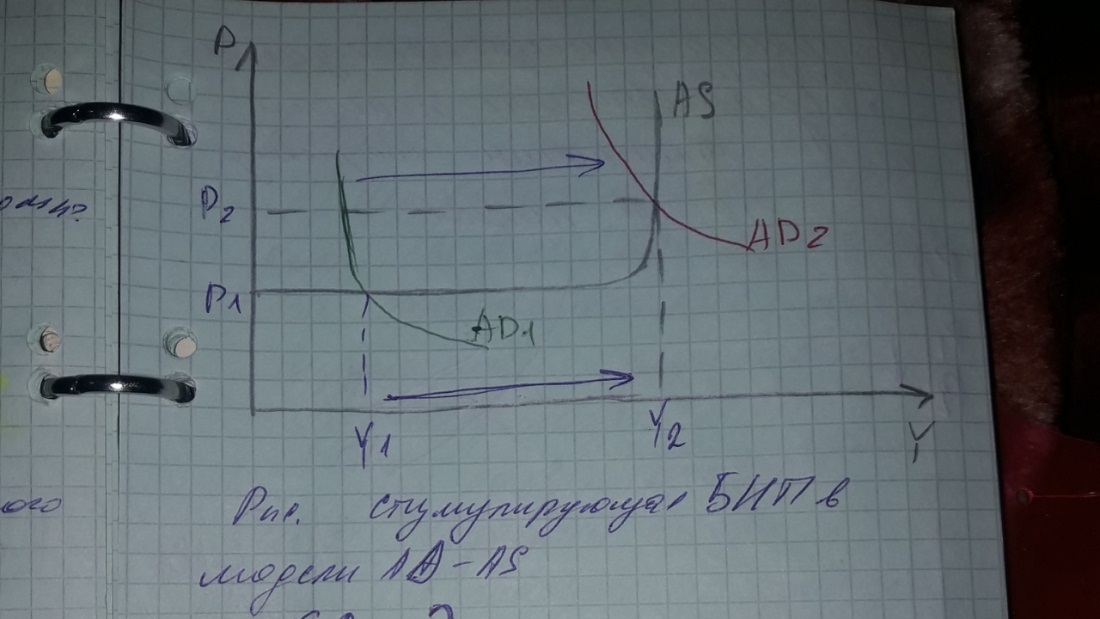 P
AS
P2
AD2
P1
AD1
Y1
Y2
Y
Рис. стимулирующая БНП в
модели AD-AS
ого